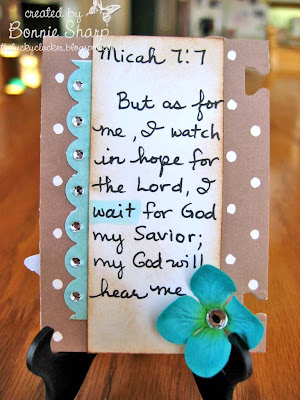 created by
Bonnie Sharp
Micah 7:7
But as for
me, I watch
in hope for
the Lord, I
wait for God
my Savior;
my God will
hear me